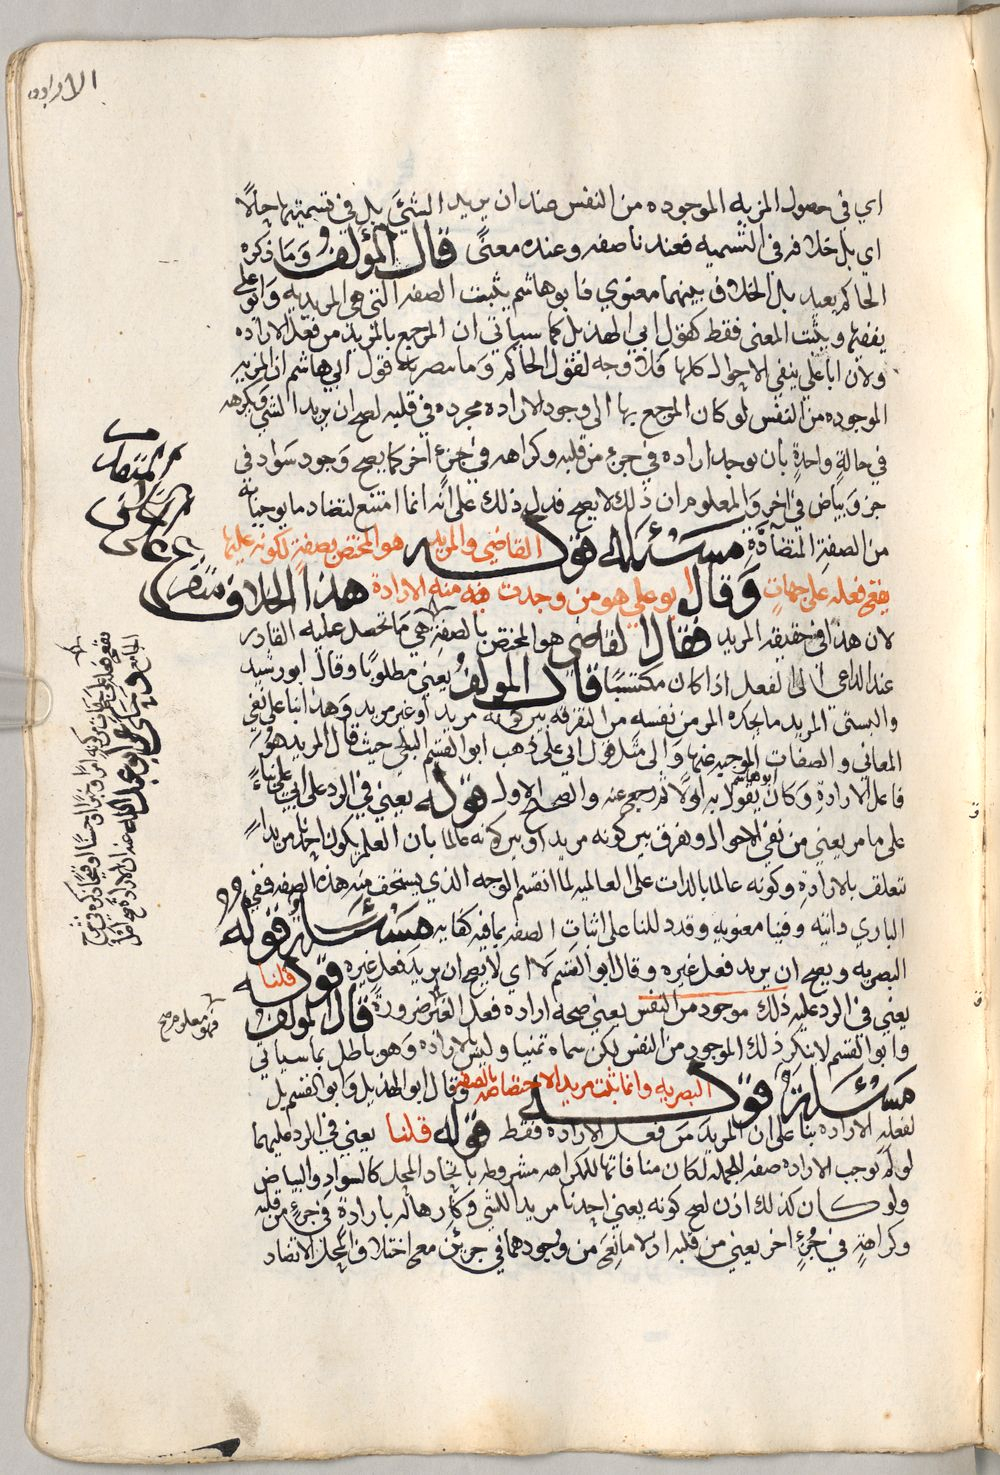 الاراده
اي في حصول المزيه الموجوده من النفس عند ان يريد الشيَ بل في تسميتها حالًا
اي بل خلافه في التسميه فعندنا صفه وعنده معنًى قال المؤلف وَمَا ذكره
الحاكم بعيد بل الخلاف بينهما معنوي فابو هاشم يثبت الصفه التي هي المريديه وابو علي
ينفيها ويثبت المعنى فقط كقول ابي الهذيل كما سياتي ان المرجع بالمريد من فعل الاراده
ولان ابا علي ينفي الاحوال كلها فلا وجه لقول الحاكم وَمما ينصر به قول ابي هاشم ان المزيه
الموجوده من النفس لو كان المرجع بها الى وجود الاراده مجرده في قلبه لصح ان يريد الشي ويكرهه
في حالةٍ واحدةٍ بان يوجد اراده في جزء من قلبه وكراهه في جزءٍ آخر كما يصح وجود سَواد في
جزء وبياض في اخر وَالمعلوم ان ذلك لا يصح فدل ذلك على انه انما امتنع لتضاد ما يوجبانه
من الصفةِ المتضآدَّة مسْئَله قوله القاضي والمريد هو المختص بصفةٍ لكونه عليها
يقع فعله على جهاتٍ وَقال ابو علي هو من وجدت منه الارادة هذا الخلاف
لان هذا في حقيقه المريد فقال القاضي هو المختص بالصفة هي ما تحصل عليه القادر
عند الداعي الى الفعل اذا كان مكتسبًا قال المولفُ يعني مطلوبًا وقال ابو رشيد
والبستي المريد ما يجده المرء من نفسه من التفرقه بين كونه مريد أو غير مريد وَهذا بنا على نفي
المعاني والصفات الموجبه عنها وَالى مثل قول ابي علي ذهب ابو القسم البلخي حيث قال المريد هو
فاعل الارادةِ وَكان ابو هاشم يقول به اولًا ثم رجع عنه والصحيح الاول قوله يعني في الرد على ابي علي بناءً
على ما مر يعني من نفي الاحوال ونفرق بين كونه مريد او بين كونه عالما بان العلم بكون احدنا مريداً
تتعلق بالارادةِ وكونه عالما بالذات على العالميه لما انقسم الوجه الذي يستحق منه هذه الصفه ففي
الباري ذاتيه وفينا معنويه وقد دللنا على اثبات الصفه بما فيه كفايه مسْئَله قوله
البصريه ويصح ان يريد فعل غيره وقال ابو القسم لَا اي لا يصح ان يريد فعل غيره قوله قلنا
يعني في الرد عليه ذلك موجود من النفس يعني صحه اراده فعل الغير ضرورةً قال المولف
وابو القسم لا ينكر ذلك الموجود من النفس لكن سماه تمنيا وليس بالاراده وَهو باطل بما سياتي
مسْئَلة قوله البصريه وانما يثبت مريد الاختصاصه بالصفه وقال ابو الهذيل وَابو القسم بل
لفعله الاراده بنا على ان المريد من فعل الاراده فقط قوله قلنا يعني في الرد عليهما
لو لم توجب الاراده صفه للجمله لكان منافاتها للكراهه مشروطه باتحاد المحل كالسواد والبياض
ولو كان كذلك اذن لصح كونه يعني احدنا مريداً للشي وَكارها له بارادة في جزءٍ من قلبه
وكراهةٍ في جُزءٍ اخر يعني من قلبه اذ لا مانعَ من وجودهما في جزئين مع اختلاف المحل لا تضاد
فهو معلوم صح